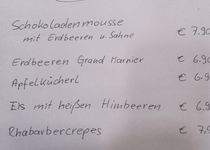 Schokoladenmousse
mit Erdbeeren u. Sahne € 7.90
Erdbeeren Grand Marnier € 6.90
Apfelkücherl € 6.90
Eis mit heißen Himbeeren € 6.9
Rhabarbercrepes € 7,9